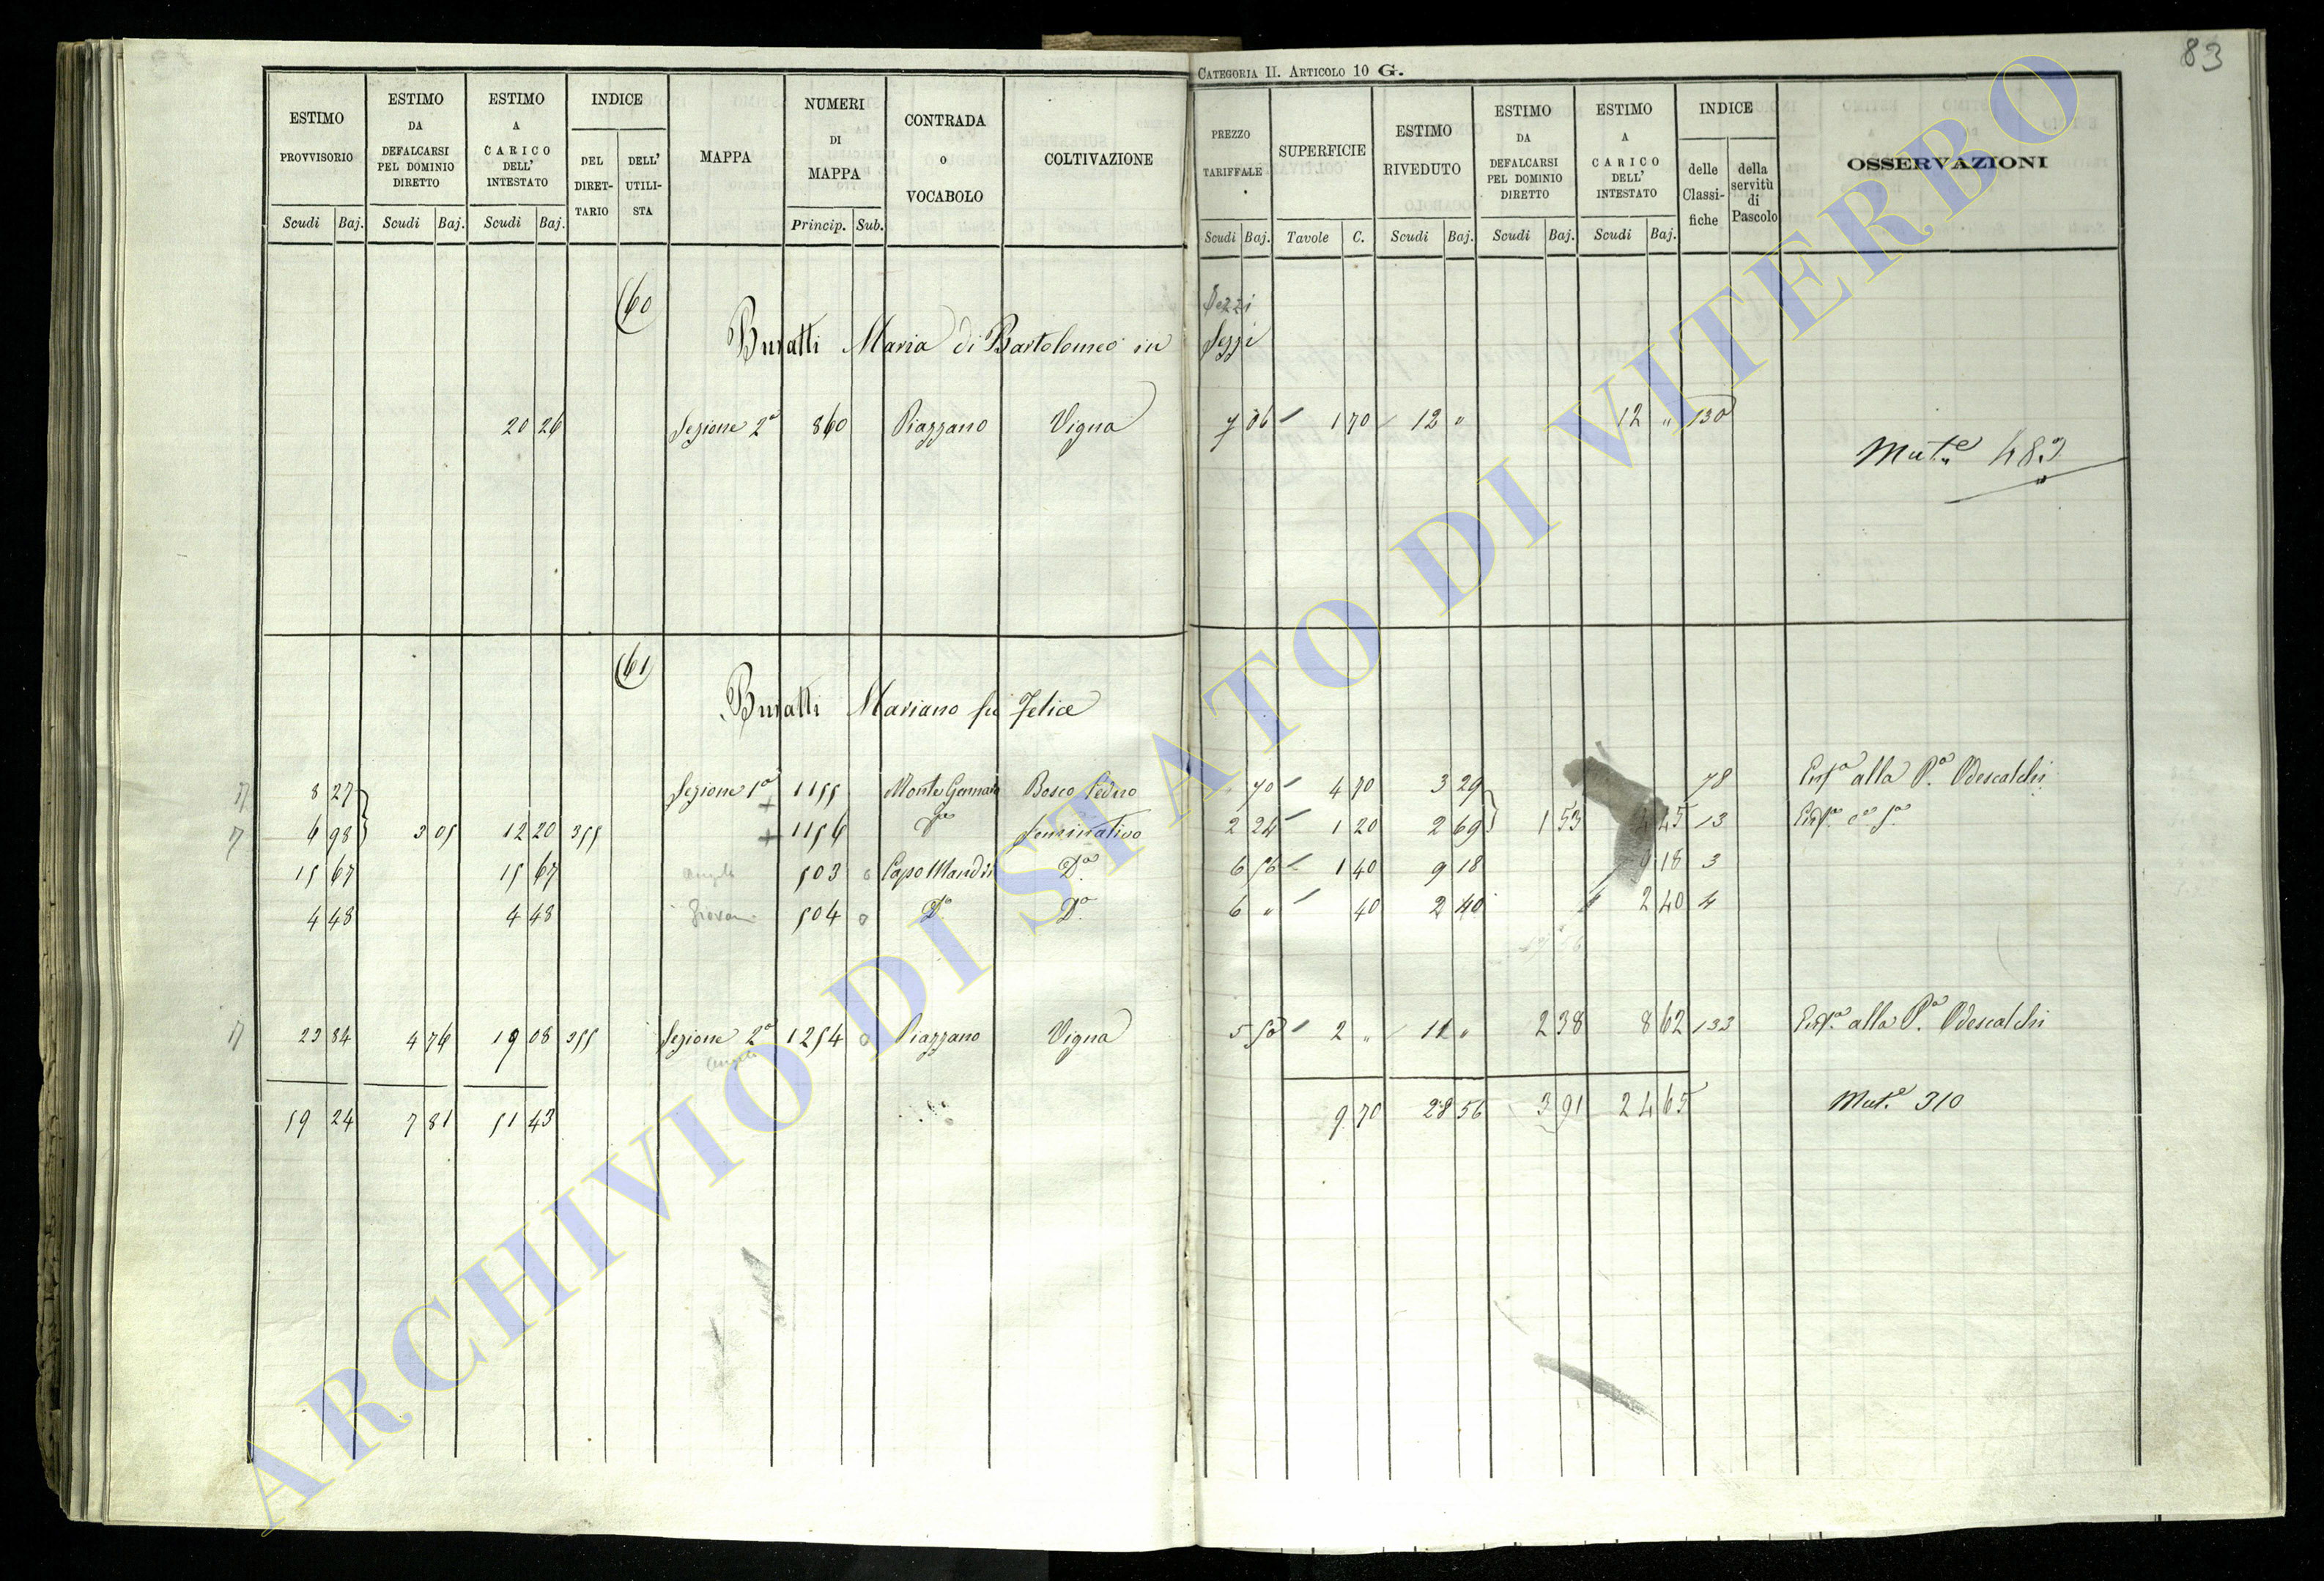 83
CATEGORIA II. ARTICOLO 10 G.
ESTIMO PROVVISORIO Scudi Baj.
ESTIMO DA DEFALCARSI PEL DOMINIO DIRETTO Scudi Baj.
ESTIMO A CARICO DELL' INTESTATO Scudi Baj.
INDICE DEL DIRETTARIO DELL' UTILISTA
MAPPA
NUMERI DI MAPPA Princip. Sub.
CONTRADA o VOCABOLO
COLTIVAZIONE
PREZZO TARIFFALE Scudi Baj.
SUPERFICIE Tavole C.
ESTIMO RIVEDUTO Scudi Baj.
ESTIMO DA DEFALCARSI PEL DOMINIO DIRETTO Scudi Baj.
ESTIMO A CARICO DELL' INTESTATO Scudi Baj.
INDICE delle Classifiche della servitù di Pascolo
OSSERVAZIONI
60
Buratti Maria di Bartolomeo in Sezzi
20 26 Sezione 2a 860 Piazzano Vigna 7 06 1 70 12 " 12 " 130
Mut.e 483
61
Buratti Mariano fu Felice
8 27 Sezione 1a 1155 Monte Gennaro Bosco Ceduo " 70 4 70 3 29 78 Enfa alla P.a Odescalchi
6 98 3 05 12 20 355 1156 Do Seminativo 2 24 1 20 2 69 1 53 4 45 13
15 67 15 67 503 Capo Mandri Do 6 56 1 40 9 18 9 18 3
4 48 4 48 504 Do Do 6 " 40 2 40 2 40 4
23 84 4 76 19 08 355 Sezione 2a 1254 Piazzano Vigna 5 50 2 " 11 " 2 38 8 62 133 Enfa alla P.a Odescalchi
59 24 7 81 51 43 9 70 28 56 3 91 24 65 Mut.e 310
ARCHIVIO DI STATO DI VITERBO